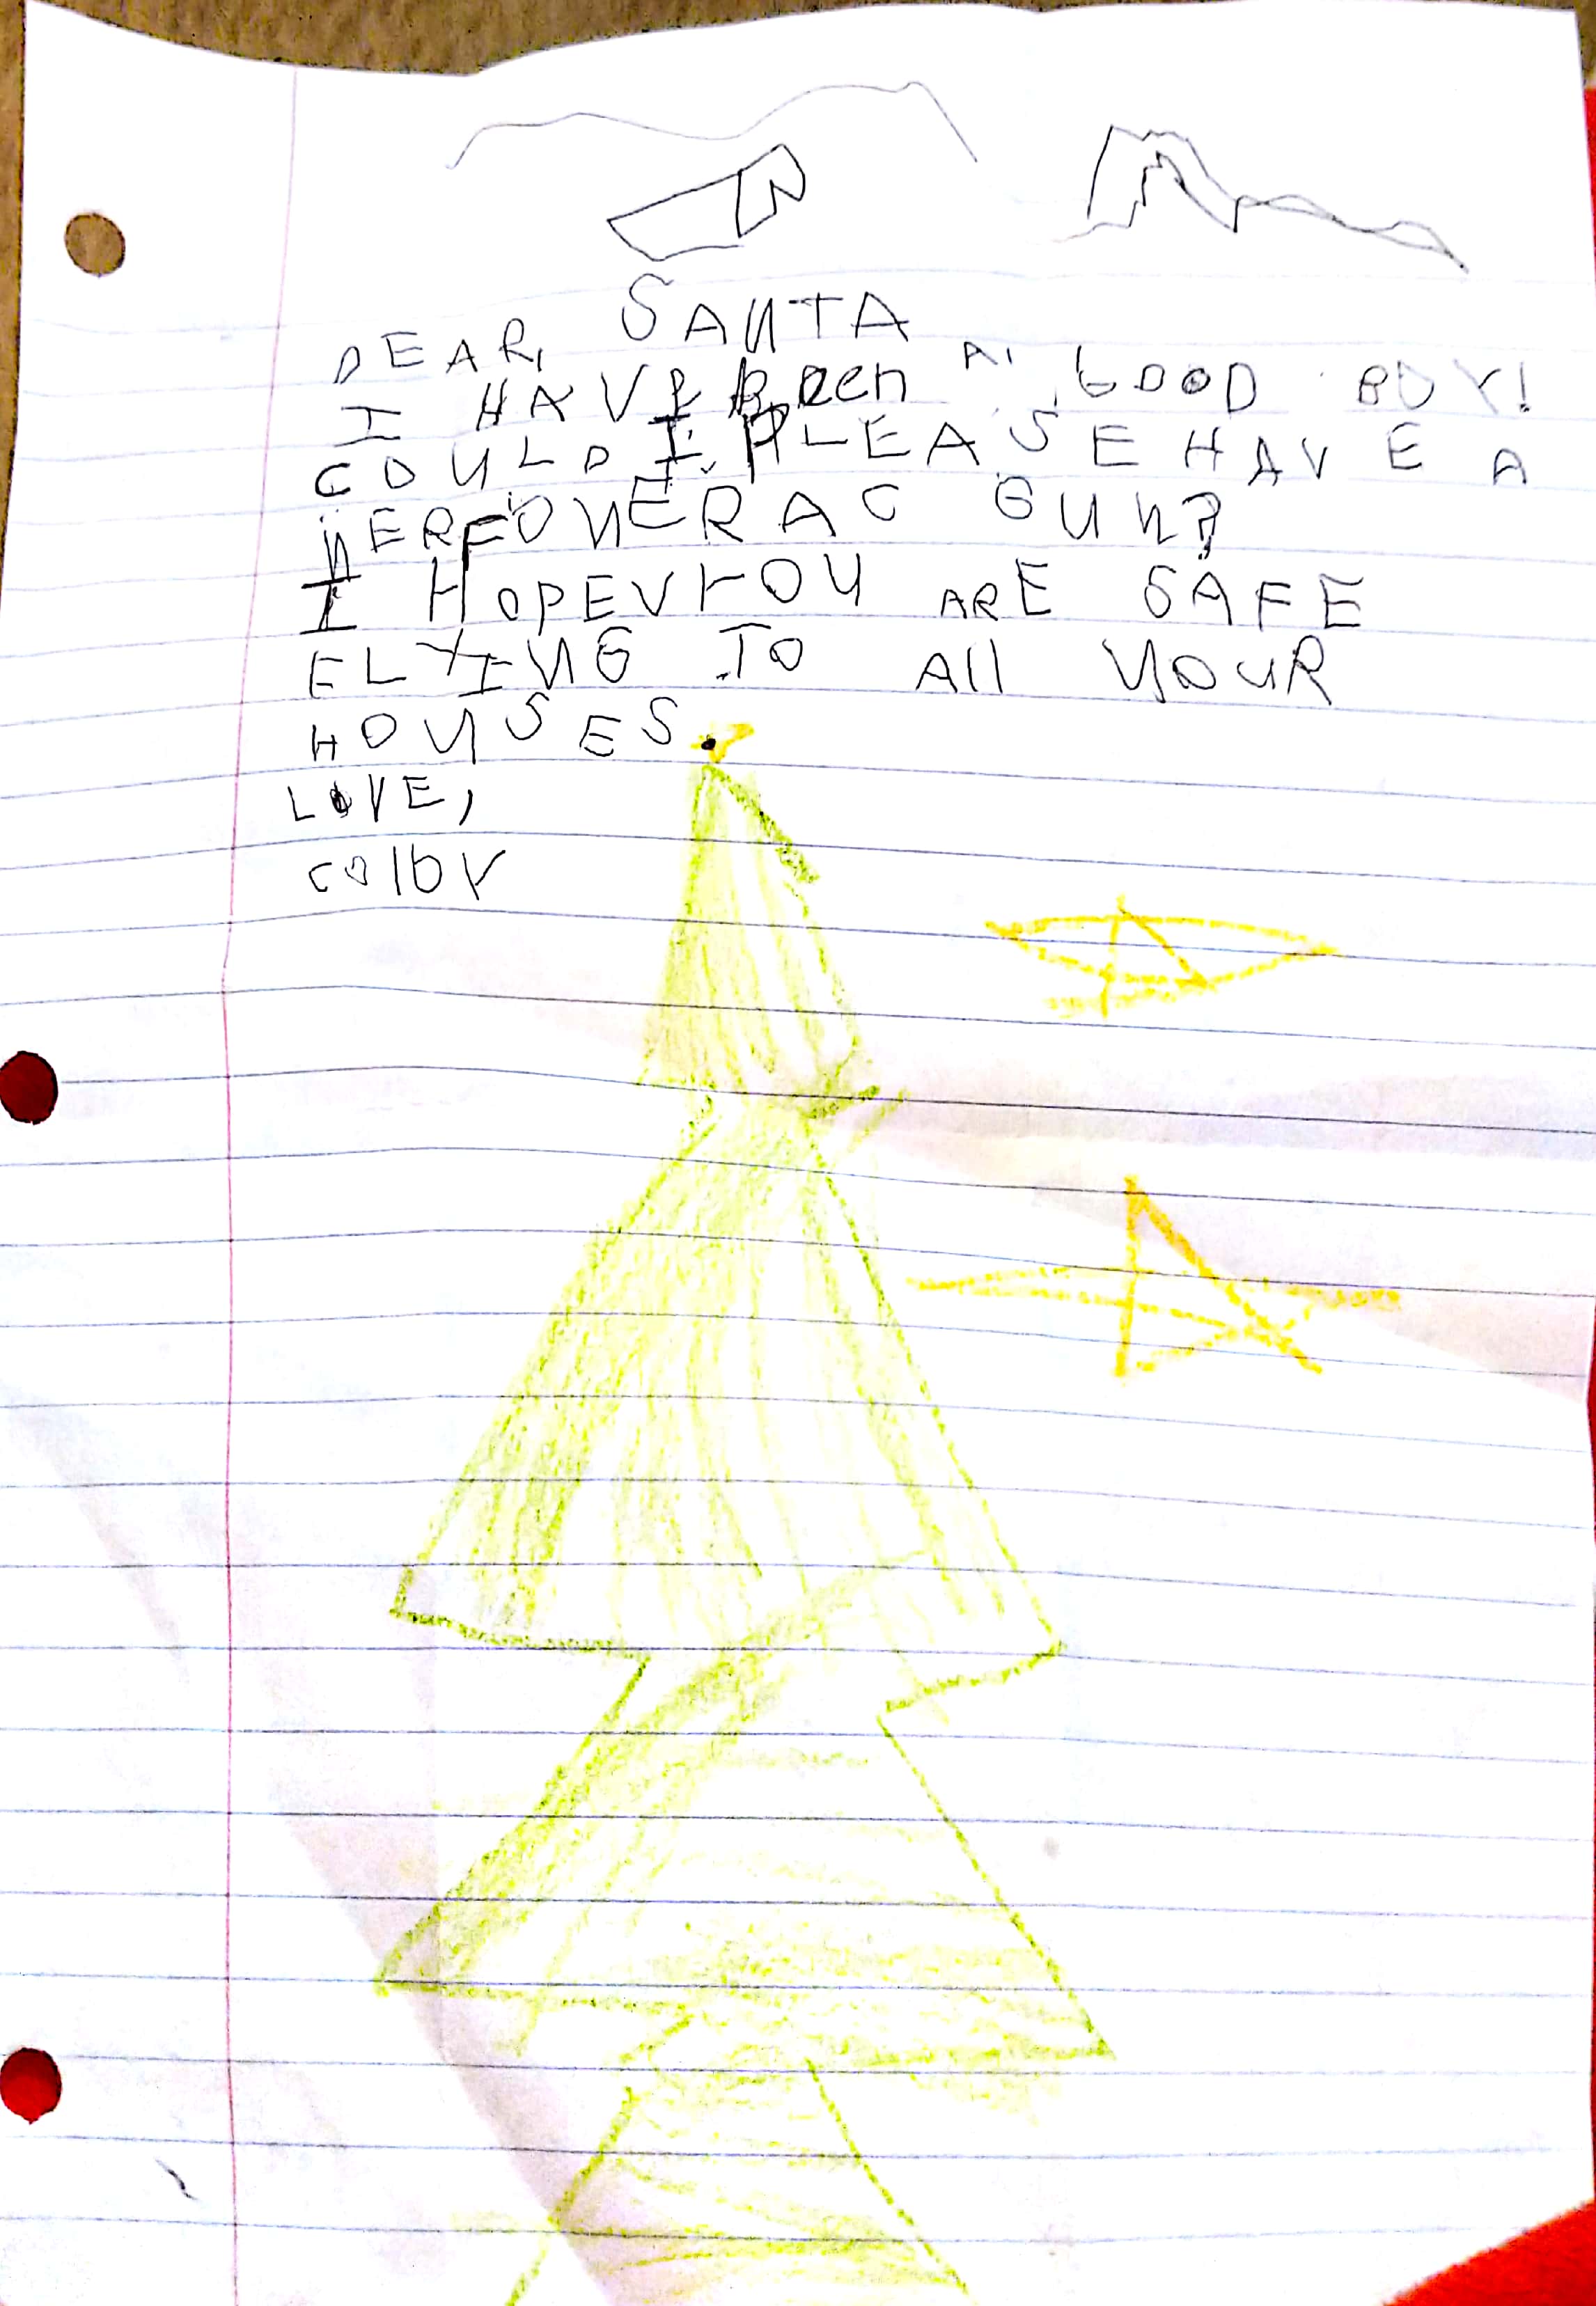 DEAR, SANTA
I HAVE Been A GOOD BOY!
COULD I PLEASE HAVE A
NERF ONERAC GUN?
I HOPE YOU ARE SAFE
FLYING TO All YOUR
HOUSES
LOVE,
Colby